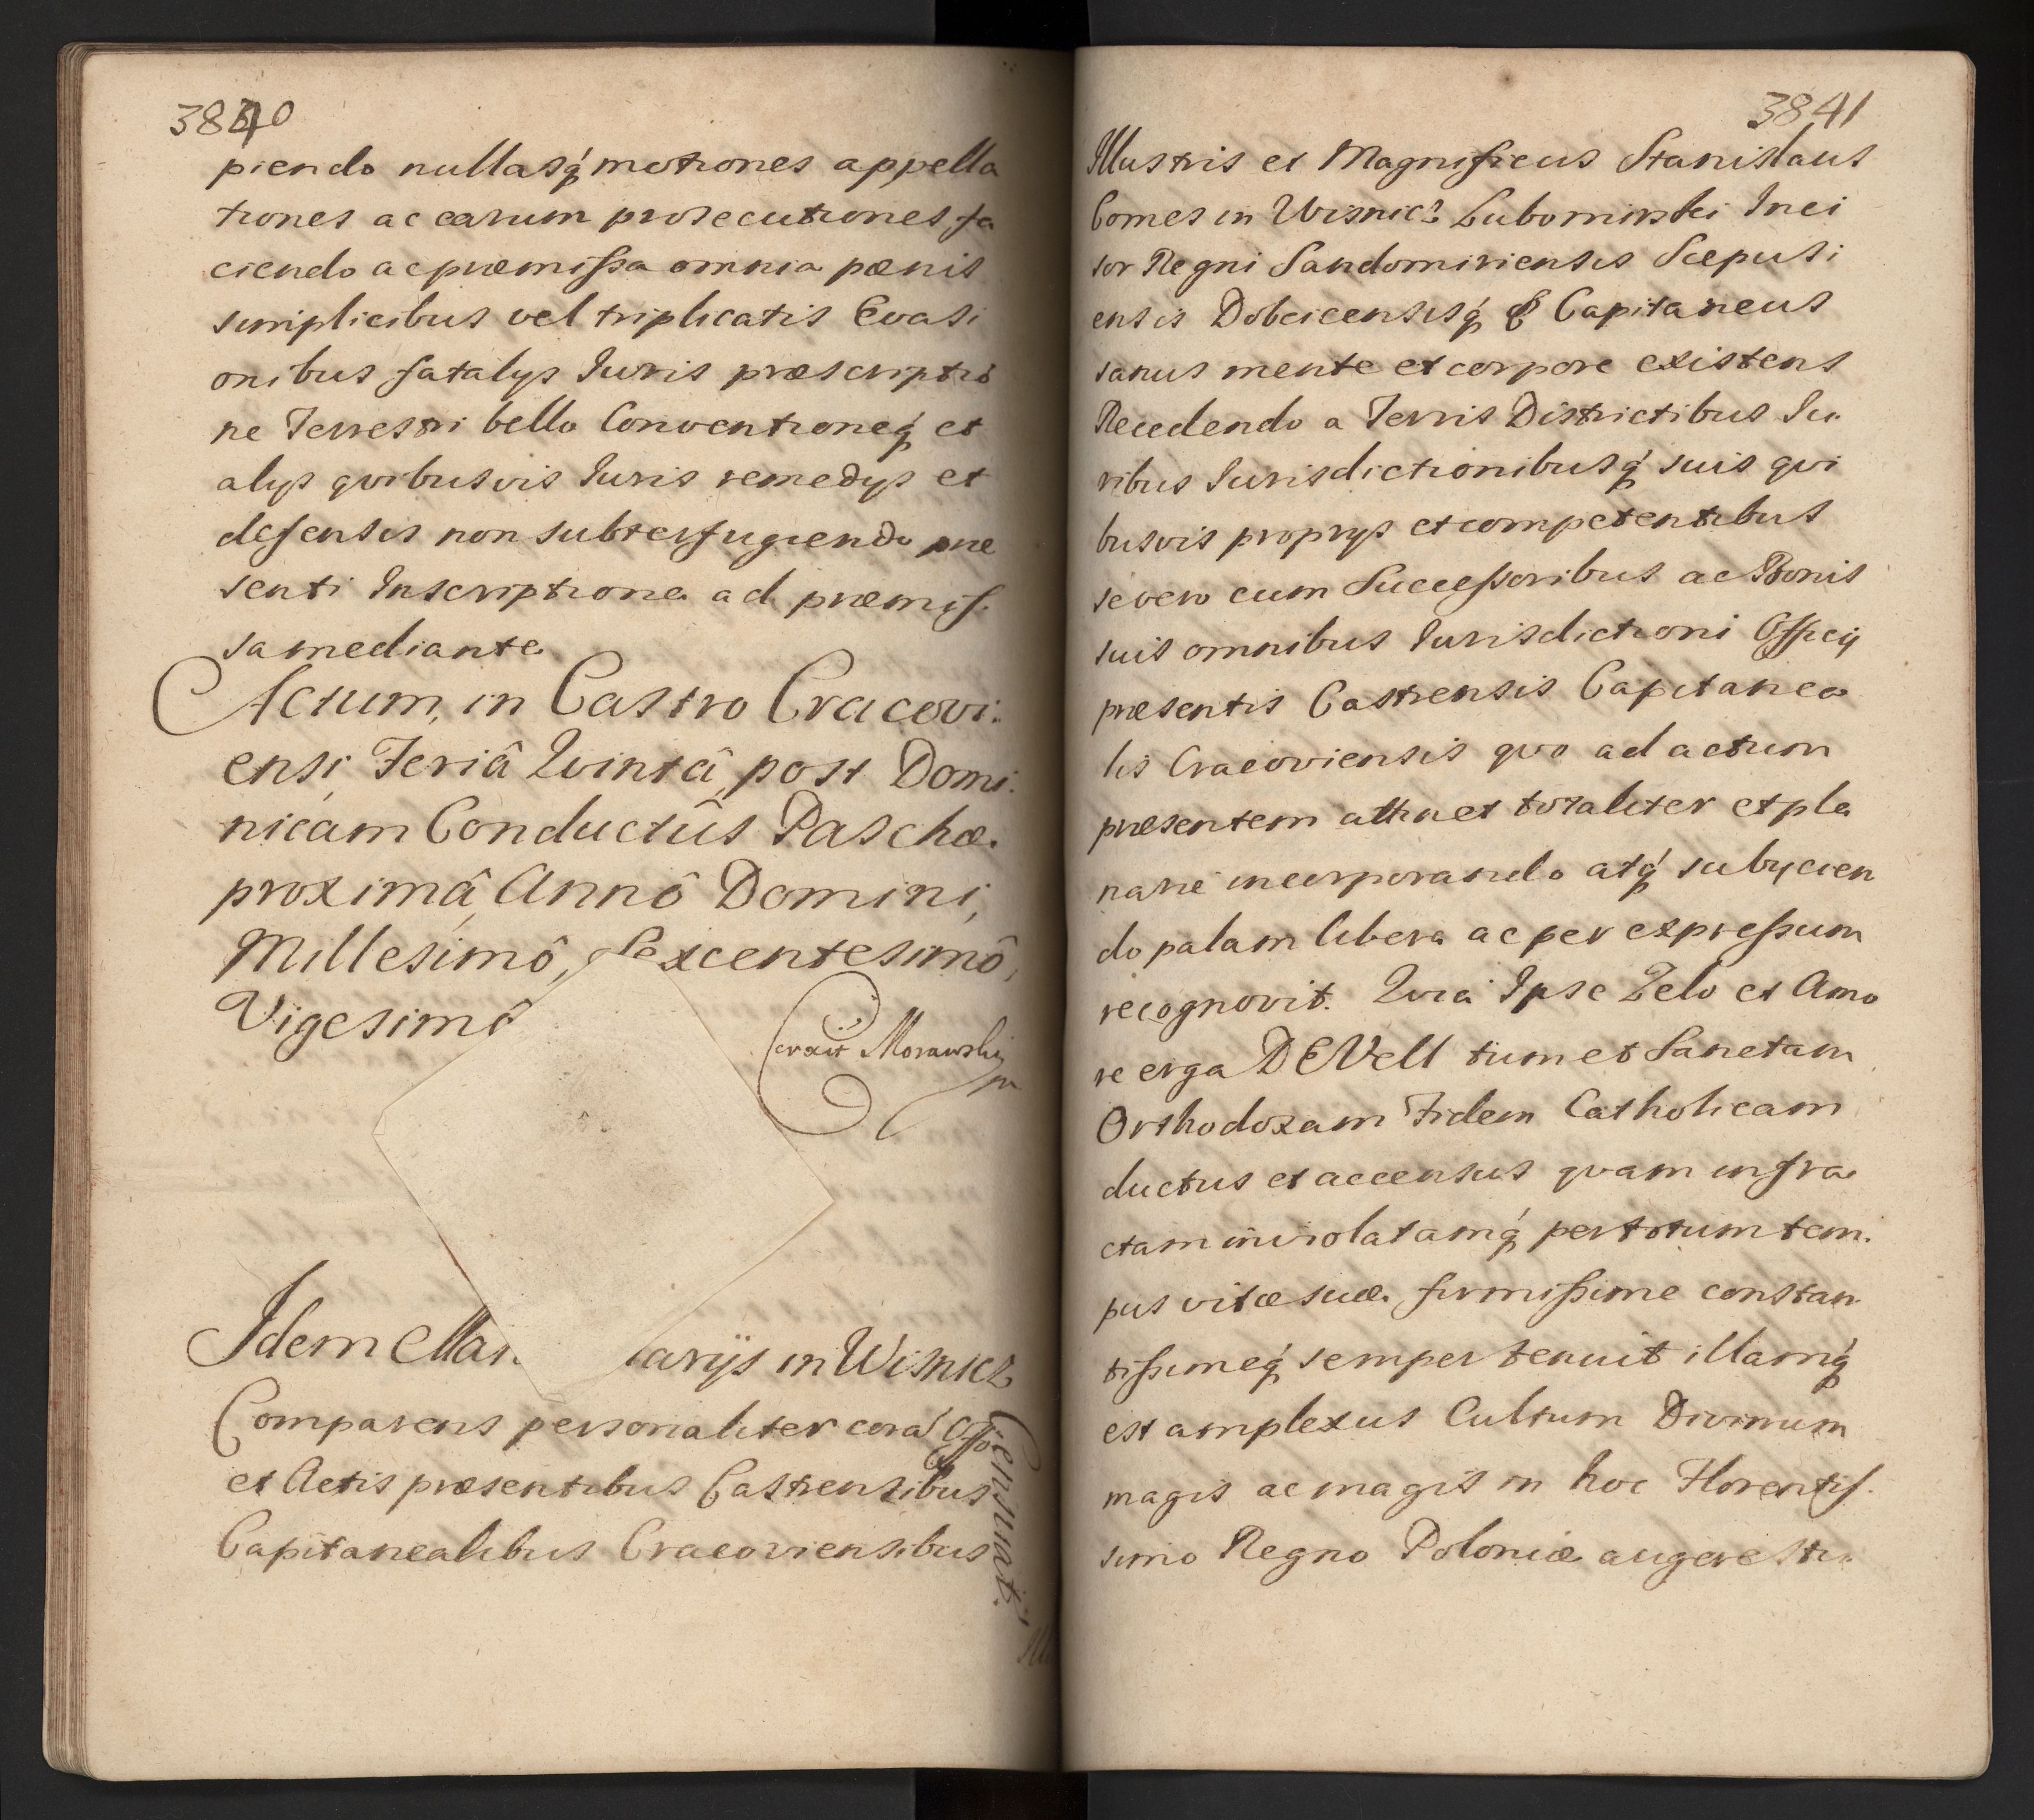 3840
piendo nullasq́ motiones appella
tiones ac earum prosecutiones fa
ciendo ac præmissa omnia pœnis
simplicibus vel triplicatis Evasi
onibus fatalys Iuris præscriptio
ne Terrestri bello Conventioneq́ et
alys qvibusvis Iuris remedys et
defensis non subterfugiendo præ
senti Inscriptione ad præmis.
sa mediante
Actum, in Castro Cracovi:
ensi, Feriâ Qvintâ, post Domi:
nicam Conductûs Paschæ.
proximâ, Annô Domini,
Millesimô, Sexcentesimô,
Vigesimô
Correxit Morawski
Idem Man larijs in Wisnicz
Comparens personaliter corá Offo
et Actis præsentibus Castrensibus
Capitanealibus Cracoviensibus
3841
Illustris et Magnificus Stanislaus
Comes in Wisnicz Lubomirski Inci
sor Regni Sandomiriensis Scepusi
ensis Dobcicensisq́ & Capitaneus
sanus mente et corpore existens
Recedendo a Terris Districtibus Iu
ribus Iurisdictionibusq́ suis qvi
busvis proprys et competentibus
se vero cum Successoribus ac Bonis
suis omnibus Iurisdictioni Officij
præsentis Castrensis Capitanea
lis Cracoviensis qvo ad actum
præsentem attinet totaliter et ple
narie incorporando atq́ subycien
do palam libere ac per expressum
recognovit. Qvia Ipse Zelo et Amo
re erga DEVell tum et Sanctam
Orthodoxam Fidem Catholicam
ductus et accensus qvam infra
ctam inviolatamq́ per totum tem.
pus vitæ suæ firmissime constan
tissimeq́ semper tenuit illamq́
est amplexus Cultum Divinum
magis ac magis in hoc Florentis.
simo Regno Poloniæ augere stu